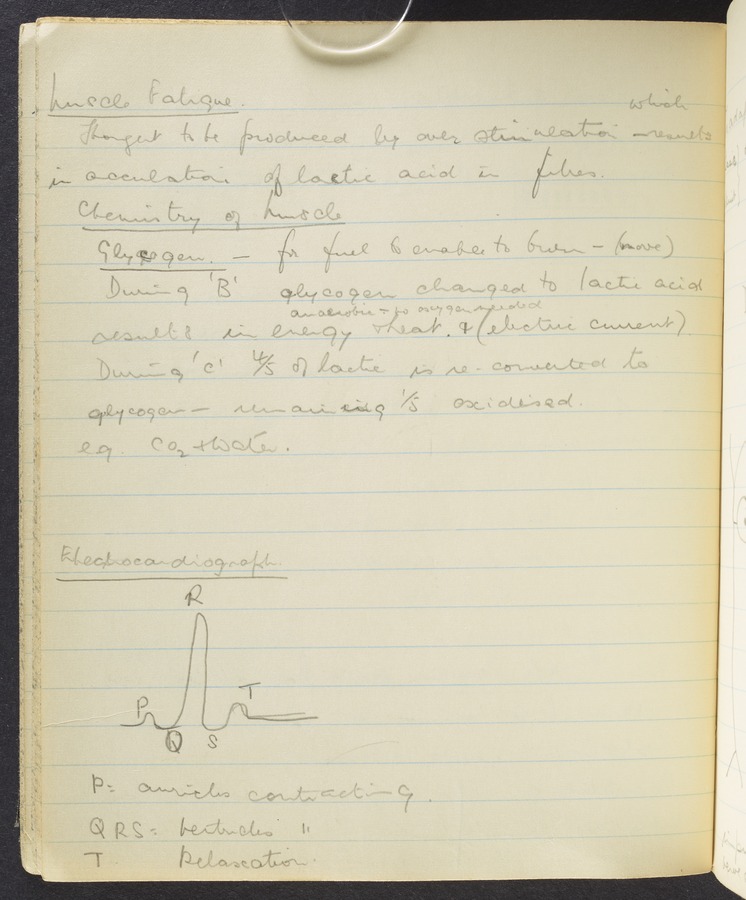 Muscle Fatigue.
which
Thought to be produced by over stimulation – results
in acculation of lactic acid in fibres.
Chemistry of Muscle
Glycogen. – for fuel & enable to burn – (move)
During 'B' glycogen changed to lactic acid
anaerobic – no oxygen needed
results in energy & heat. & (electric current)
During 'C' 4/5 of lactic is re-converted to
glycogen – remaining 1/5 oxidised.
eg. CO2 + Water.
Electrocardiograph.
R
P T
Q S
P = auricles contracting.
QRS = Ventricles "
T Relaxation.